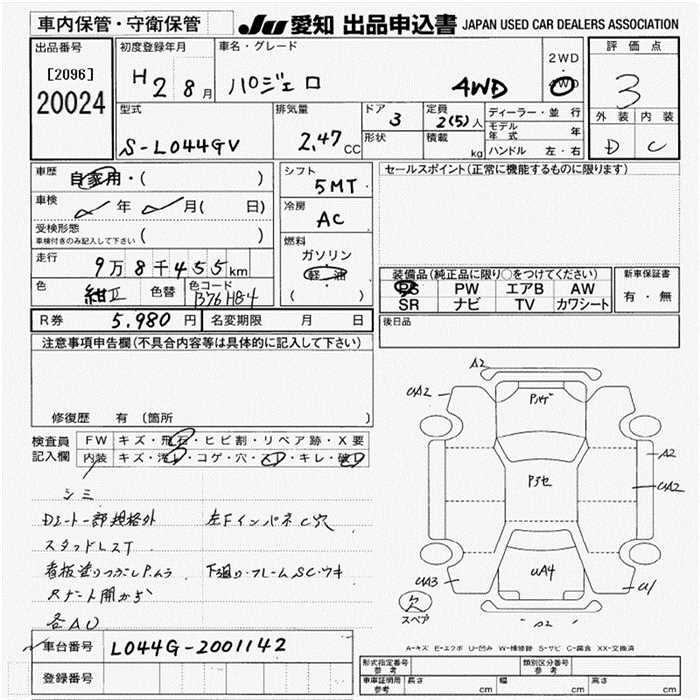 車内保管・守衛保管
JU 愛知 出品申込書 JAPAN USED CAR DEALERS ASSOCIATION
出品番号
[2096]
20024
初度登録年月
H 2 8月
車名・グレード
パジェロ 4WD
2WD
・
4WD
評価点
3
外装 内装
D C
型式
S-L044GV
排気量
2,47 CC
ドア
3
形状
定員
2(5)人
積載
kg
ディーラー・並行
モデル年式 年
ハンドル 左・右
車歴
自家用・( )
車検
年 月( 日)
受検形態
車検付きのみ記入して下さい ( )
走行
9万8千455km
色
紺II
色替
色コード
B76 H84
シフト
5MT
冷房
AC
燃料
ガソリン
軽油
( )
セールスポイント(正常に機能するものに限ります)
装備品(純正品に限り○をつけてください)
PS PW エアB AW
SR ナビ TV カワシート
新車保証書
有・無
R券 5,980円 名変期限 月 日
後日品
注意事項申告欄(不具合内容等は具体的に記入して下さい)
修復歴 有 (箇所 )
検査員記入欄
FW キズ・飛石・ヒビ割・リペア跡・X要
内装 キズ・汚レ・コゲ・穴・スレ・キレ・破レ
シミ
Dミラー一部規格外 左FインパネC穴
スタッドレスT
看板塗りつぶしP.ムラ 下廻り・フレームSC・ウキ
各AU
A2
UA2
Pハゲ
A2
UA2
Pヨセ
UA4
UA3
U1
スペア
A2
A-キズ E-エクボ U-凹み W-補修跡 S-サビ C-腐食 XX-交換済
車台番号 L044G-2001142
登録番号
形式指定番号
参考
類別区分番号
参考
車車証明用
参考
長さ cm 幅 cm 高さ cm